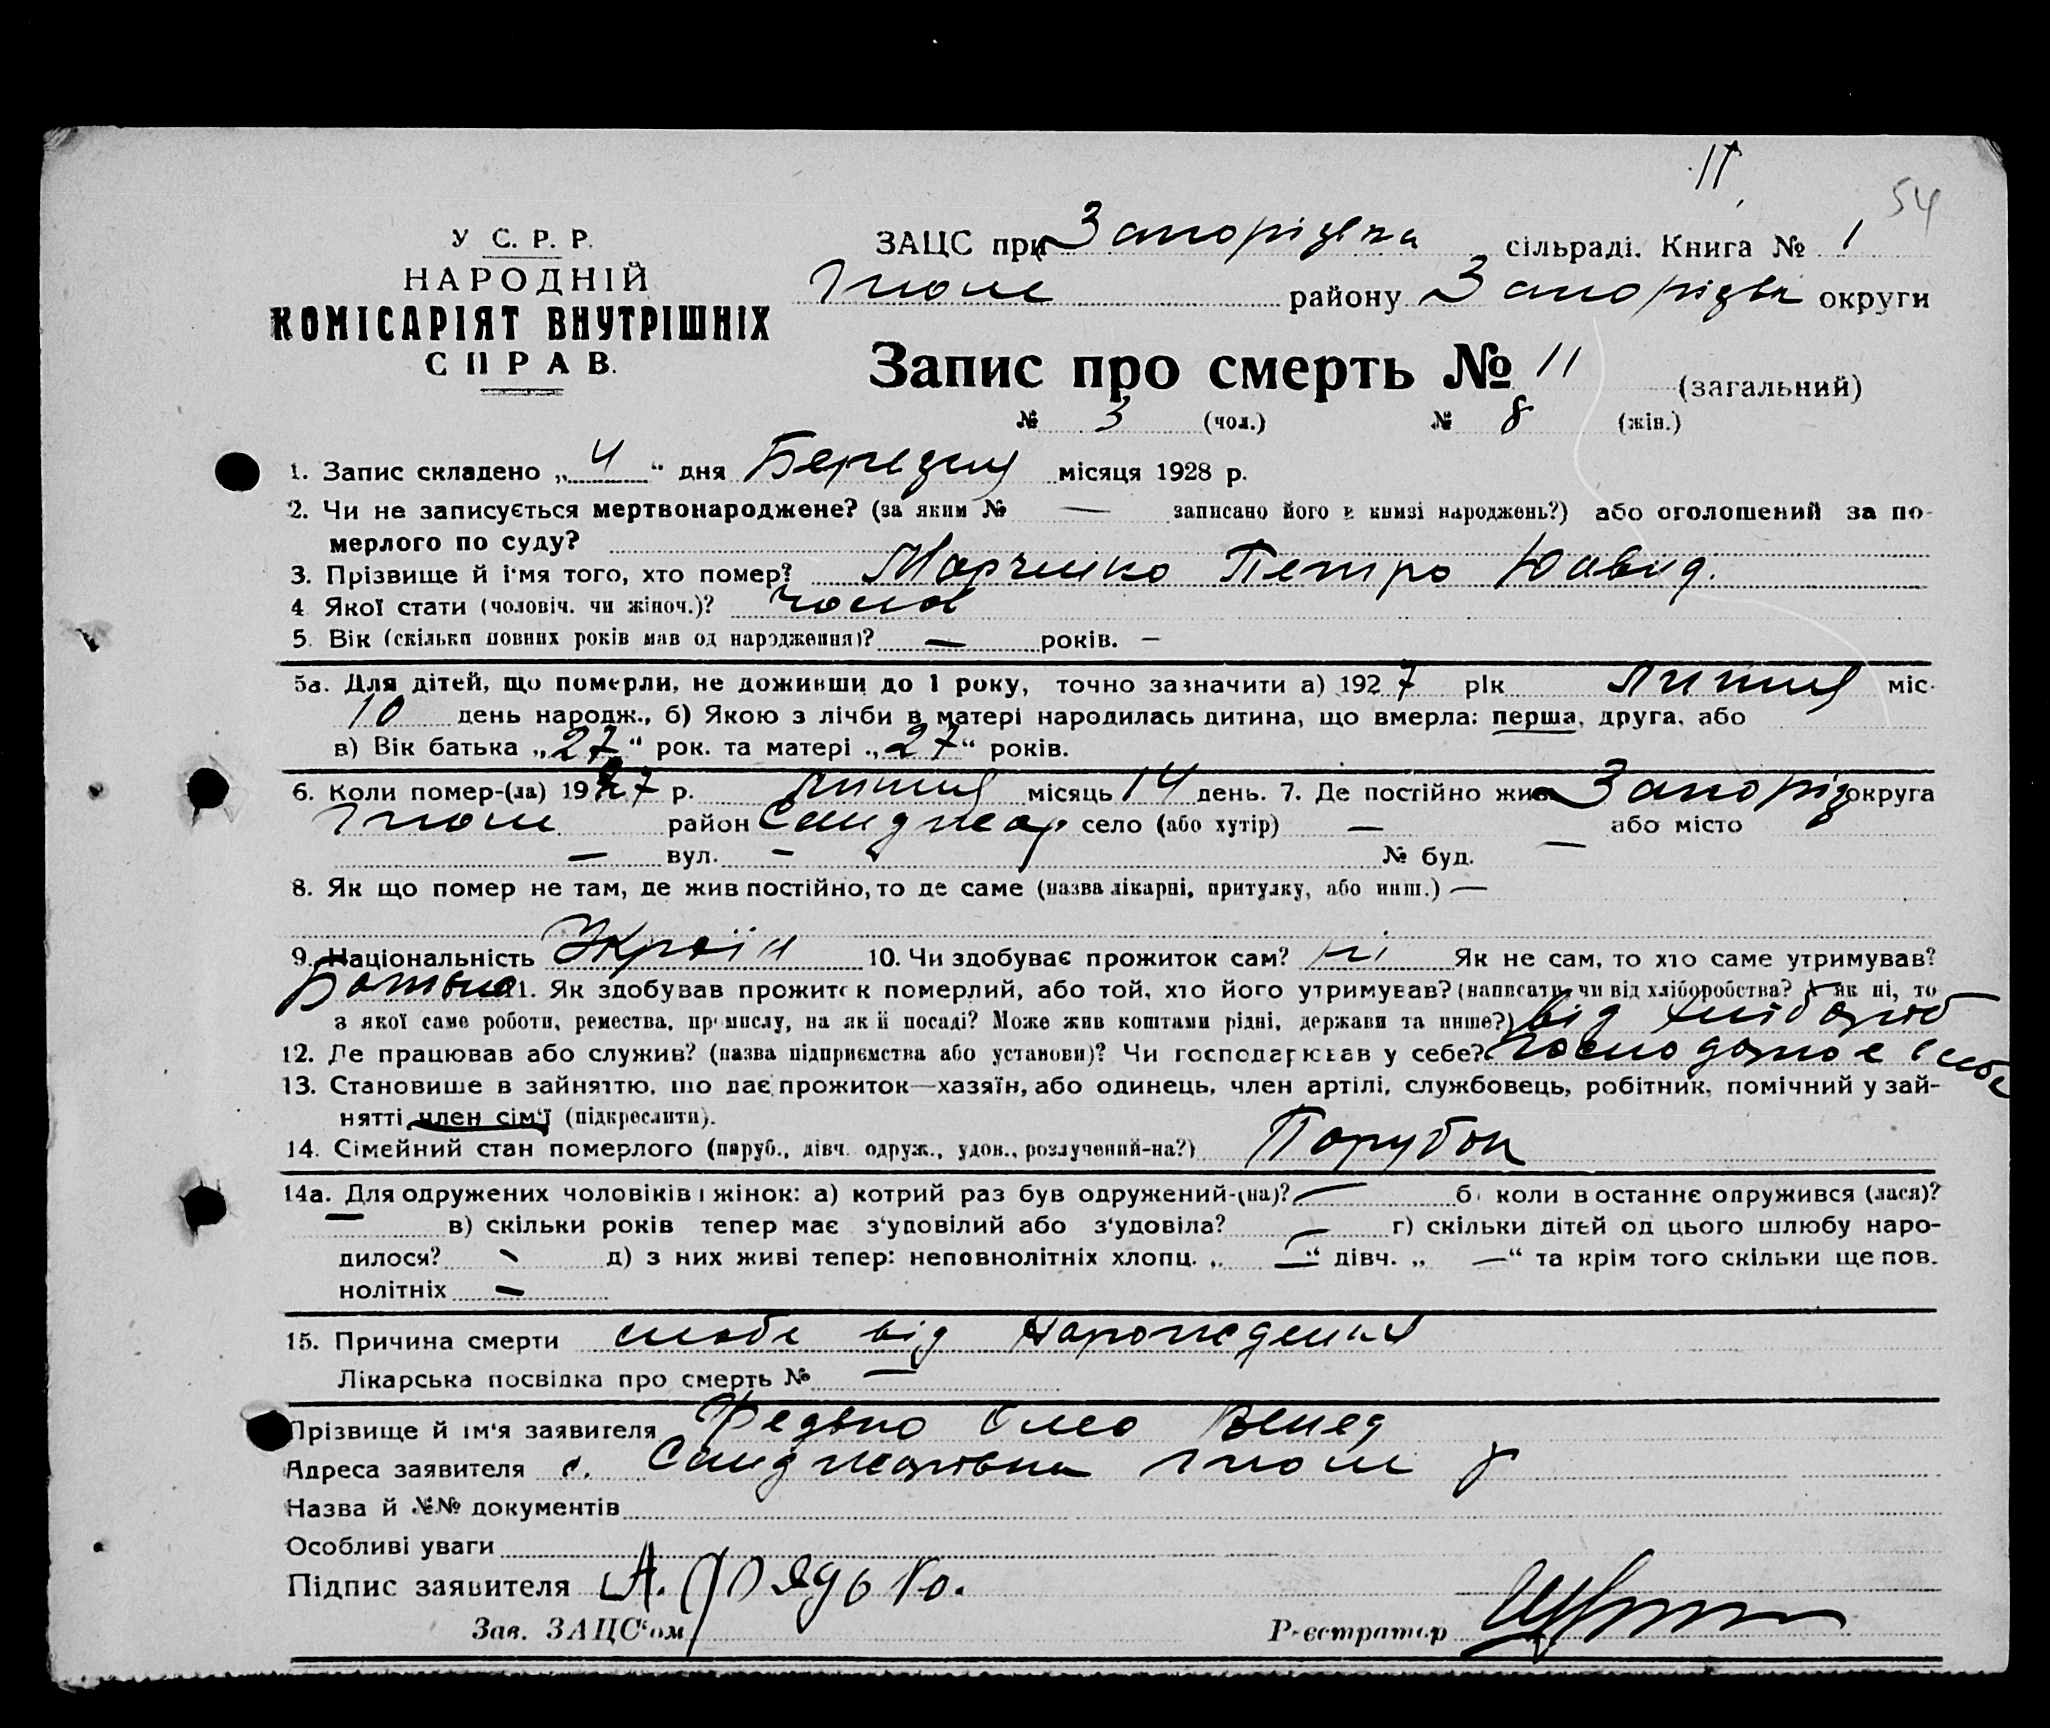 11
54
У. С. Р. Р.
НАРОДНІЙ
КОМІСАРІЯТ ВНУТРІШНІХ
СПРАВ.
ЗАЦС при Запорізька сільраді. Книга № 1
району Запорізьк округи
Запис про смерть № 11 (загальний)
№ 3 (чол.) № 8 (жін.)
1. Запис складено „4“ дня Березня місяця 1928 р.
2. Чи не записується мертвонароджене? (за яким № — записано його в книзі народжень?) або оголошений за по-
мерлого по суду?
3. Прізвище й ім‘я того, хто помер? Марченко Петро
4. Якої статі (чоловіч. чи жіноч.)?
5. Вік (скільки повних років мав од народження)? — років. —
5а. Для дітей, що померли, не доживши до 1 року, точно зазначити а) 1927 рік Липня міс.
10 день народж., б) Якою з лічби в матері народилась дитина, що вмерла: перша, друга, або
в) Вік батька „27“ рок. та матері „27“ років.
6. Коли помер-(ла) 1927 р. Липня місяць 14 день. 7. Де постійно жив Запоріз округа
район Санджар село (або хутір) — або місто
— вул. — № буд. —
8. Як що помер не там, де жив постійно, то де саме (назва лікарні, притулку, або инш.) —
9. Національність Україн 10. Чи здобуває прожиток сам? ні Як не сам, то хто саме утримував?
Батько 11. Як здобував прожиток померлий, або той, хто його утримував? (написати, чи від хліборобства? А як ні, то
з якої саме роботи, ремества, промислу, на якій посаді? Може жив коштами рідні, держави та инше?) від хлібороб
12. Де працював або служив? (назва підприємства або установи)? Чи господарював у себе? господарює в себе
13. Становище в зайняттю, що дає прожиток—хазяїн, або одинець, член артілі, службовець, робітник, помічний у зай-
нятті член сім‘ї (підкреслити).
14. Сімейний стан померлого (паруб., дівч. одруж., удов., розлучений-на?) Парубок
14а. Для одружених чоловіків і жінок: а) котрий раз був одружений-(на)? — б) коли востаннє одружився (лася)?
— в) скільки років тепер має з‘удовілий або з‘удовіла? — г) скільки дітей од цього шлюбу наро-
дилося? — д) з них живі тепер: неповнолітніх хлопц. „—“ дівч. „—“ та крім того скільки ще пов.
нолітніх —
15. Причина смерти слабе від нарождения
Лікарська посвідка про смерть № —
Прізвище й ім‘я заявителя Федько
Адреса заявителя с. Санджарівка
Назва й №№ документів
Особливі уваги
Підпис заявителя А. Федько.
Зав. ЗАЦС‘ом Реєстратор